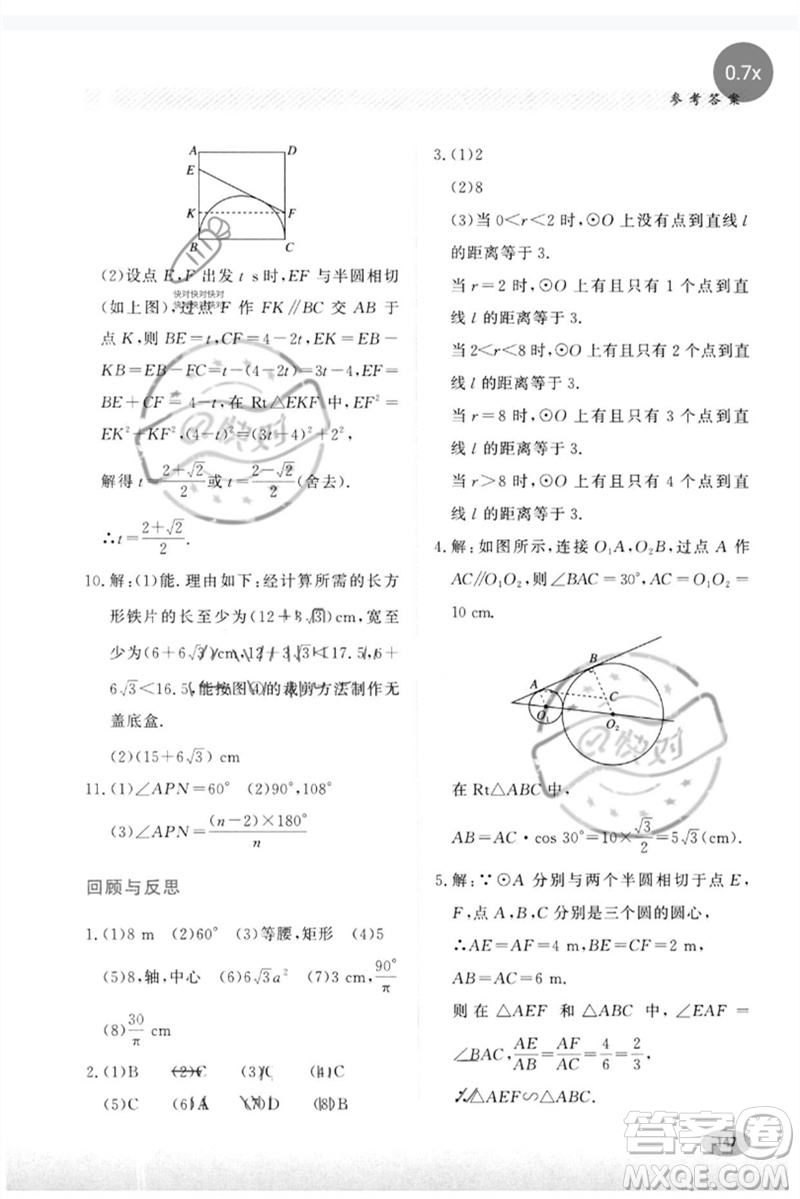 0.7x
参考答案
A D
E
K F
B C
(2)设点 E,F 出发 t s时,EF 与半圆相切
快对快对快对
(如上图),过点 F 作 FK∥BC 交 AB 于
快对快对快对
点 K,则 BE=t,CF=4-2t,EK=EB-
KB=EB-FC=t-(4-2t)=3t-4,EF=
BE+CF=4-t,在 Rt△EKF 中,EF²=
EK²+KF²,(4-t)²=(3t-4)²+2²,
解得 t=(2+√2)/2 或 t=(2-√2)/2 (舍去).
∴t=(2+√2)/2.
10. 解:(1)能. 理由如下:经计算所需的长方
形铁片的长至少为(12+ √3)cm,宽至
少为(6+6√3)cm, 12+ √3<17.5, 6+
6√3<16.5,能按图 的裁剪方法制作无
盖底盒.
(2)(15+6√3) cm
11. (1)∠APN=60° (2)90°,108°
(3)∠APN=(n-2)×180°/n
回顾与反思
1. (1)8 m (2)60° (3)等腰,矩形 (4)5
(5)8,轴,中心 (6)6√3a² (7)3 cm,90°/π
(8)30/π cm
2. (1)B (2)C (3)C (4)B
(5)C (6)A (7)D (8)B
3. (1)2
(2)8
(3)当 0<r<2 时,⊙O 上没有点到直线 l
的距离等于 3.
当 r=2 时,⊙O 上有且只有 1 个点到直
线 l 的距离等于 3.
当 2<r<8 时,⊙O 上有且只有 2 个点到直
线 l 的距离等于 3.
当 r=8 时,⊙O 上有且只有 3 个点到直
线 l 的距离等于 3.
当 r>8 时,⊙O 上有且只有 4 个点到直
线 l 的距离等于 3.
4. 解:如图所示,连接 O₁A,O₂B,过点 A 作
AC∥O₁O₂,则∠BAC=30°,AC=O₁O₂=
10 cm.
B
A C
O₁ O₂
在 Rt△ABC 中,
AB=AC·cos 30°=10×√3/2=5√3(cm).
5. 解:∵⊙A 分别与两个半圆相切于点 E,
F,点 A,B,C 分别是三个圆的圆心,
∴AE=AF=4 m,BE=CF=2 m,
AB=AC=6 m.
则在 △AEF 和 △ABC 中,∠EAF=
∠BAC,AE/AB=AF/AC=4/6=2/3,
∴△AEF∽△ABC.
147
快对
快对
答案卷
MXQE.COM